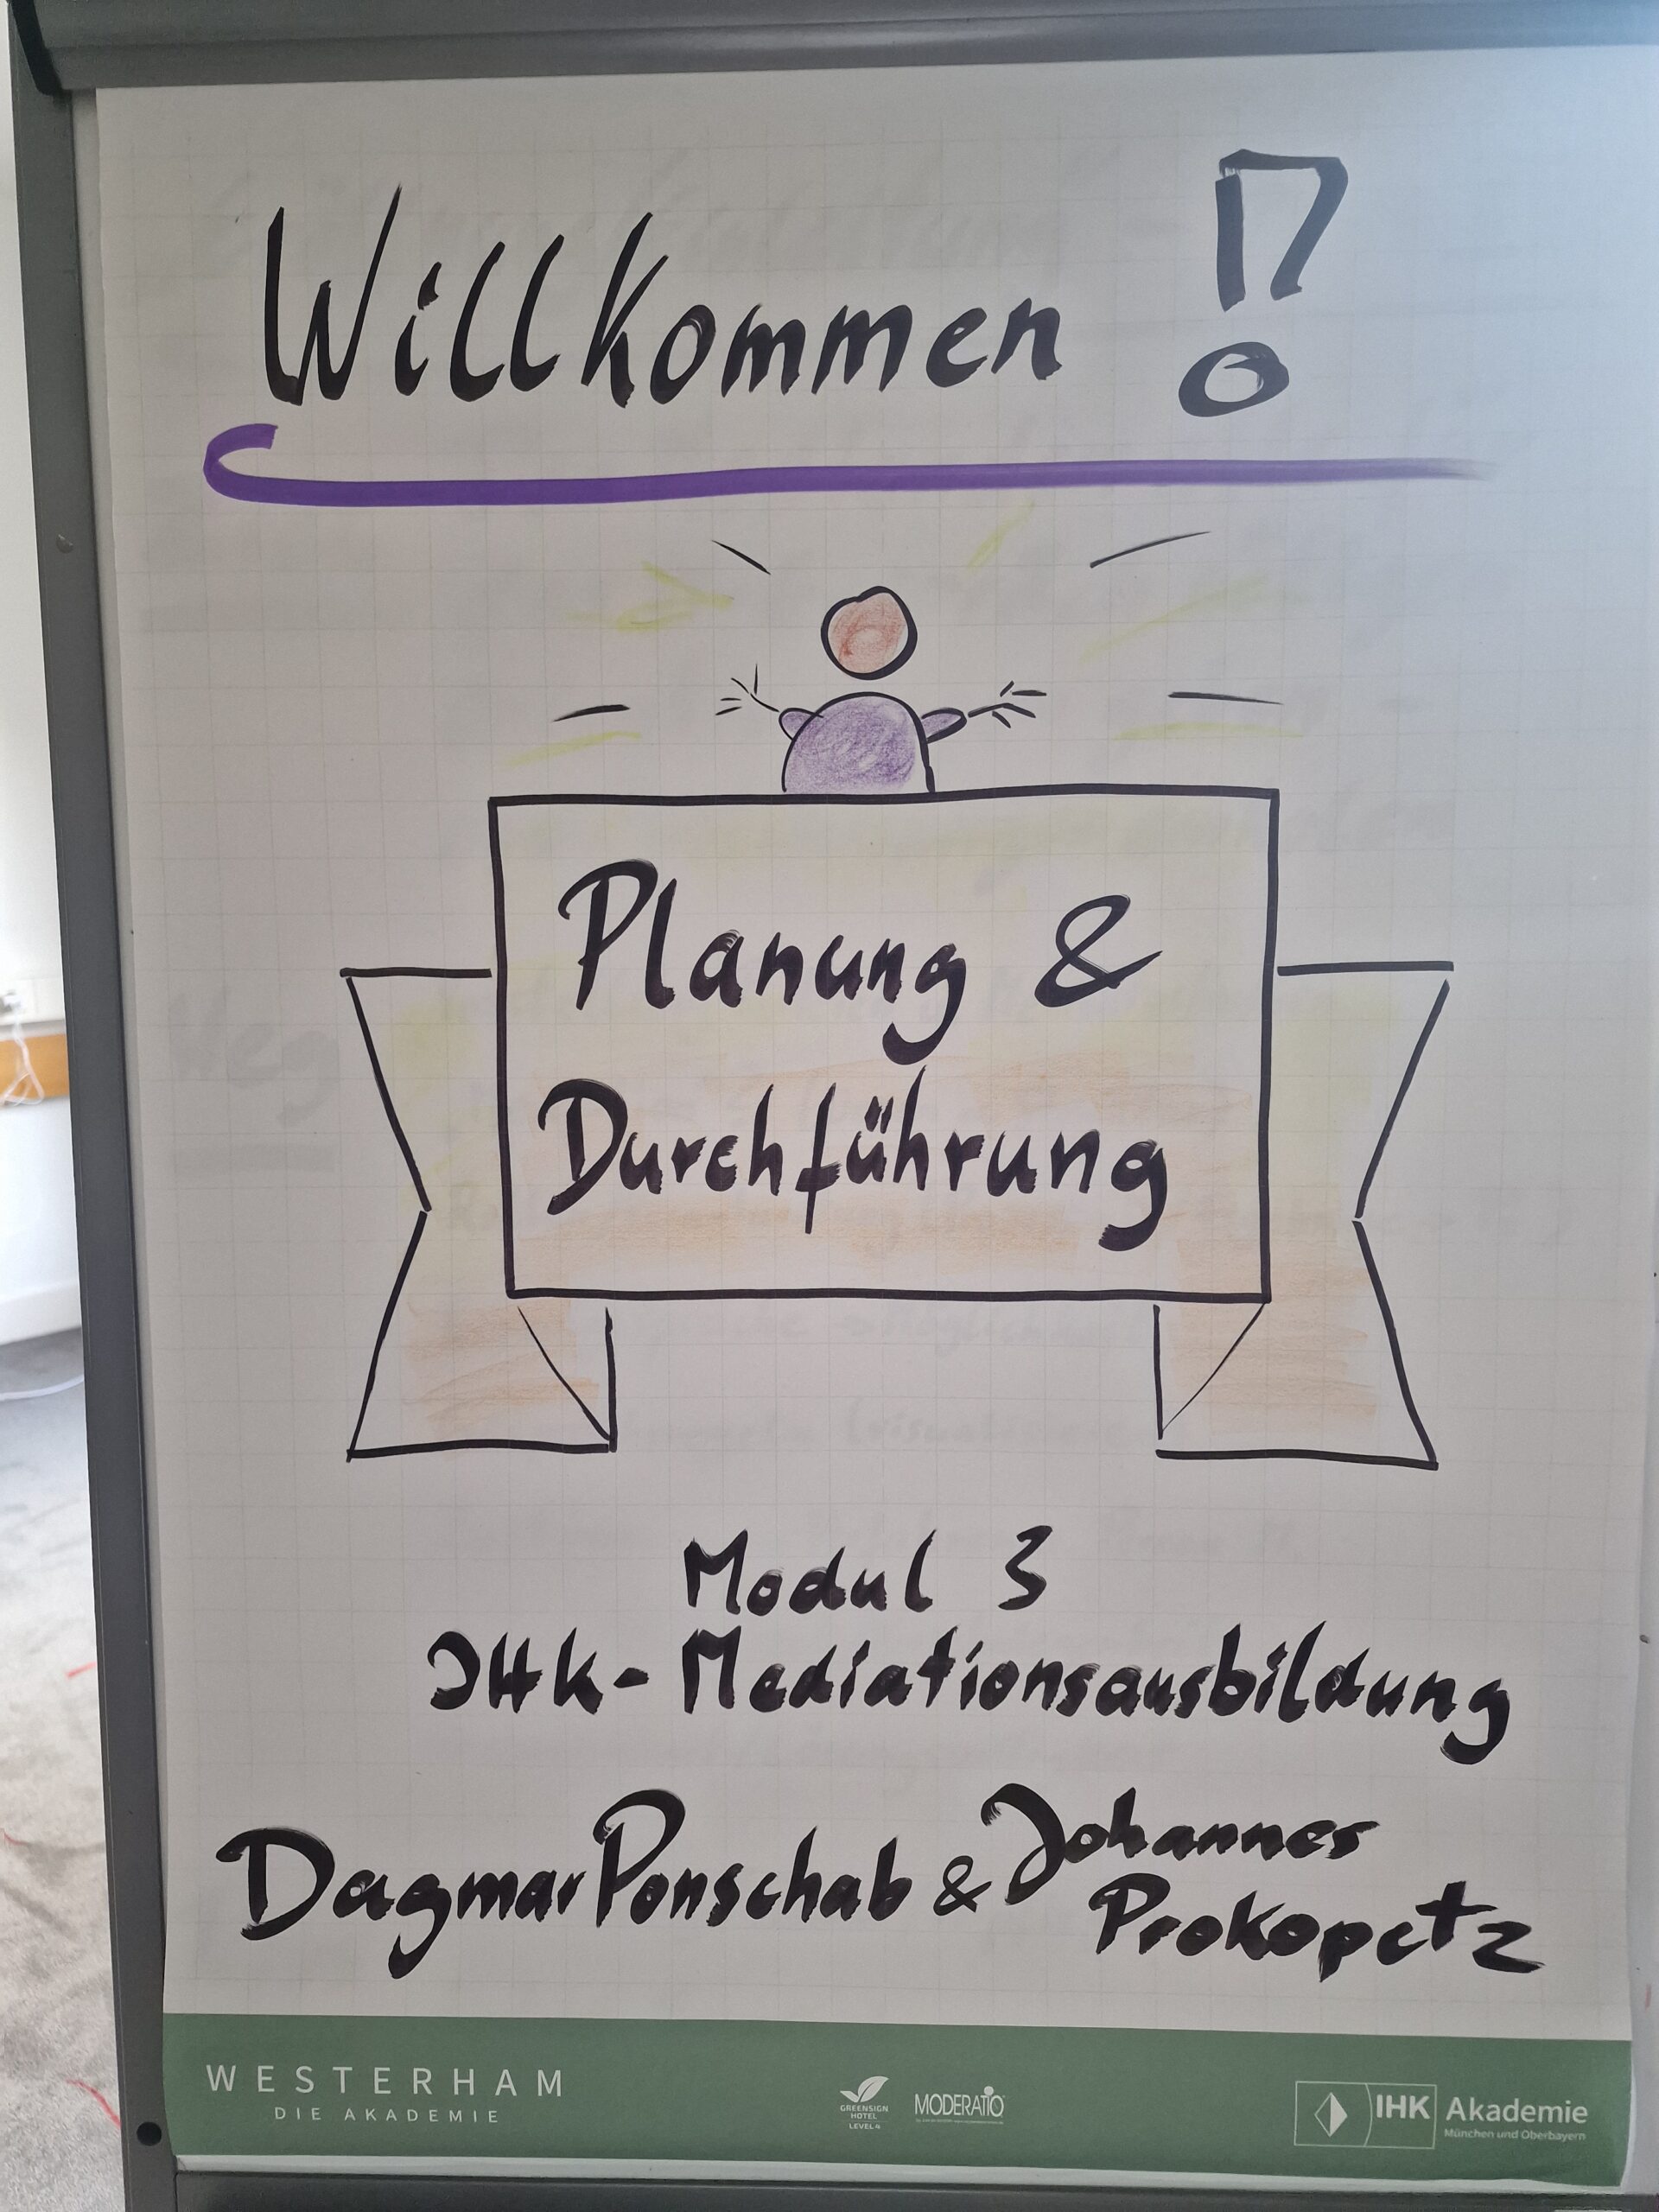 Willkommen !
Planung &
Durchführung
Modul 3
IHK-Mediationsausbildung
Dagmar Ponschab & Johannes
Prokopetz
WESTERHAM
DIE AKADEMIE
GREENSIGN
HOTEL
LEVEL 4
MODERATIO
IHK Akademie
München und Oberbayern